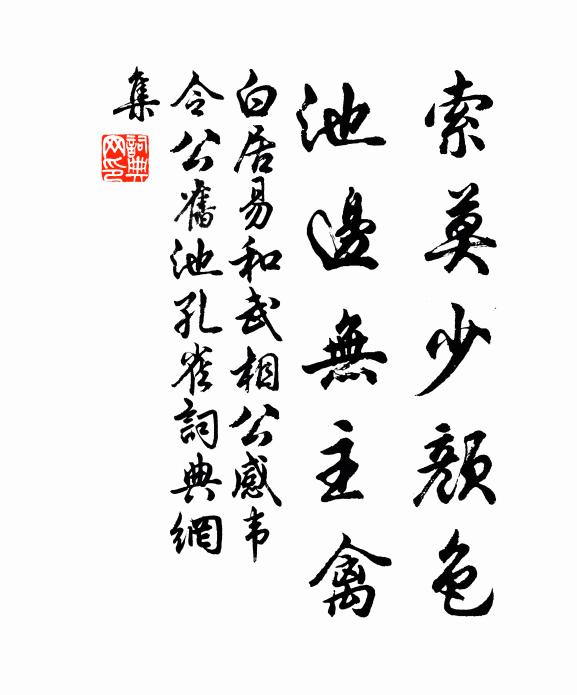 索莫少顔色
池邊無主禽
白居易和武相公感韦
令公舊池孔雀詞典網
集
詞典
网印